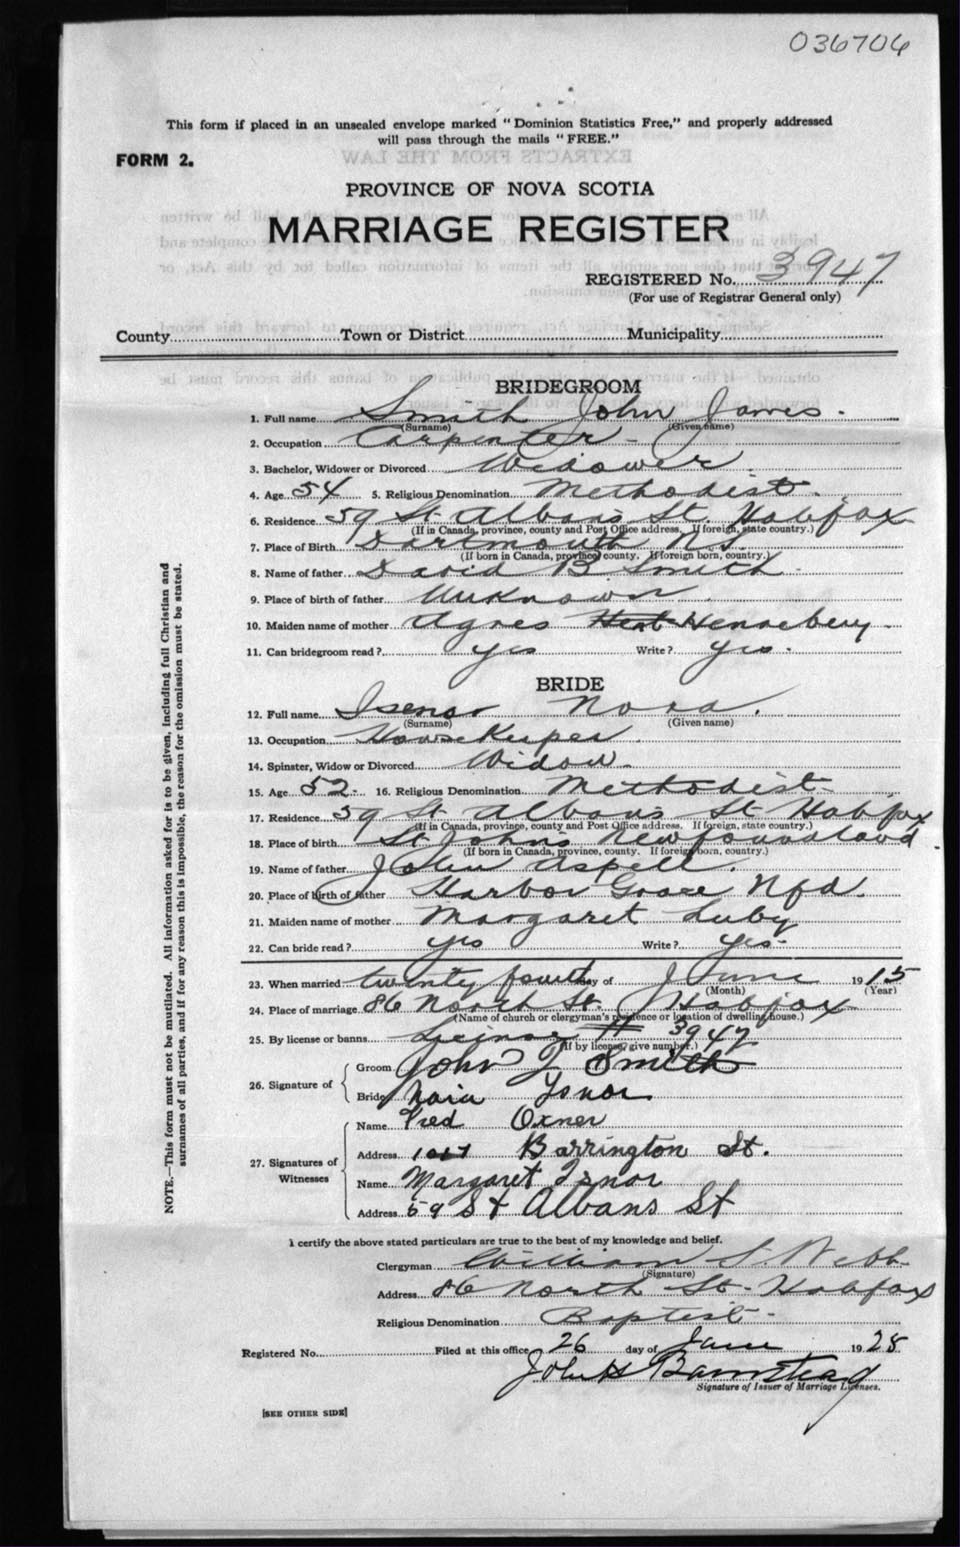 036706
This form if placed in an unsealed envelope marked “Dominion Statistics Free,” and properly addressed
will pass through the mails “FREE.”
FORM 2.
EXTRACTS FROM THE LAW
PROVINCE OF NOVA SCOTIA
MARRIAGE REGISTER
REGISTERED No. 3947
(For use of Registrar General only)
County Town or District Municipality
BRIDEGROOM
1. Full name Smith John James.
(Surname) (Given name)
2. Occupation Carpenter -
3. Bachelor, Widower or Divorced Widower.
4. Age 54 5. Religious Denomination Methodist.
6. Residence 59 St Albans St. Halifax
(If in Canada, province, county and Post Office address. If foreign, state country.)
7. Place of Birth Dartmouth N.S.
(If born in Canada, province, county. If foreign born, country.)
8. Name of father David B Smith.
9. Place of birth of father Unknown.
10. Maiden name of mother Agnes Hennebery.
11. Can bridegroom read? yes Write? yes.
BRIDE
12. Full name Isenor Nora.
(Surname) (Given name)
13. Occupation Housekeeper.
14. Spinster, Widow or Divorced Widow.
15. Age 52- 16. Religious Denomination Methodist-
17. Residence 59 St Albans St Halifax
(If in Canada, province, county and Post Office address. If foreign, state country.)
18. Place of birth St Johns Newfoundland.
(If born in Canada, province, county. If foreign born, country.)
19. Name of father John Aspell.
20. Place of birth of father Harbor Grace Nfd.
21. Maiden name of mother Margaret Luby
22. Can bride read? yes Write? yes-
23. When married twenty fourth day of June 19
(Month) (Year)
24. Place of marriage 86 North St. Halifax
(Name of church or clergyman's residence or location of dwelling house.)
25. By license or banns # 3947
(If by license, give number.)
26. Signature of Groom John J Smith
Bride Isnor
27. Signatures of Witnesses Name Fred Oxner
Address Barrington St.
Name Margaret Isnor
Address 59 St Albans St
I certify the above stated particulars are true to the best of my knowledge and belief.
Clergyman William S. Webb
(Signature)
Address 86 North St- Halifax
Religious Denomination Baptist-
Registered No. Filed at this office 26 day of June 19
John H Barnstead
Signature of Issuer of Marriage Licenses.
[SEE OTHER SIDE]
NOTE.—This form must not be mutilated. All information asked for is to be given, including full Christian and
surnames of all parties, and if for any reason this is impossible, the reason for the omission must be stated.